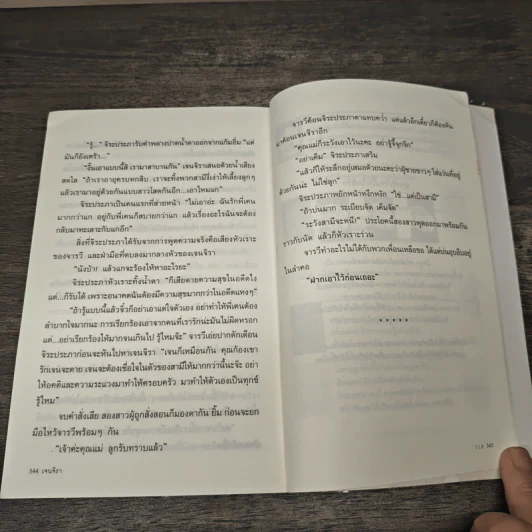 "รู้..." จิระประภารับคำพลางปาดน้ำตาออกจากแก้มยิ้ม "แต่
มันก็ยังเศร้า..."
"งั้นเอาแบบนี้สิ เรามาสาบานกัน" เจนจิราเสนอด้วยน้ำเสียง
สดใส "ถ้าเราอายุครบหกสิบ เราจะทิ้งพวกสามีขี้เหงาให้เลี้ยงลูกๆ
แล้วเรามาอยู่ด้วยกันแบบสาวโสดกันอีก...เอาไหมแก"
จิระประภาเป็นคนแรกที่ส่ายหน้า "ไม่เอาอ่ะ ฉันรักพี่เคน
มากกว่าแก อยู่กับพี่เคนก็สบายกว่าแก แล้วเรื่องอะไรฉันจะต้อง
กลับมาทะเลาะกับแกอีก"
สิ่งที่จิระประภาได้รับจากการพูดความจริงคือเสียงหัวเราะ
ของจารวี และฝ่ามือที่ตบลงมากลางหัวของเจนจิรา
"นังบ้า! แล้วแกจะร้องไห้หาอะไรยะ"
จิระประภาหัวเราะทั้งน้ำตา "ก็เสียดายความสุขในอดีตไง
แต่...ก็รับได้ เพราะอนาคตฉันต้องมีความสุขมากกว่าในอดีตแหงๆ"
"ถ้ารู้แบบนี้แล้วจิ๋วก็อย่าเอาแต่ใจตัวเอง อย่าทำให้พี่เคนต้อง
ลำบากใจมากนะ การเรียกร้องเอาจากคนที่เรารักน่ะมันไม่ผิดหรอก
แต่...อย่าเรียกร้องให้มากจนเกินไป รู้ไหมจ๊ะ" จารวีเอ่ยปากตักเตือน
จิระประภาก่อนจะหันไปหาเจนจิรา "เจนก็เหมือนกัน คุณก้องเขา
รักเจนจะตาย เจนจะต้องเชื่อใจในตัวของสามีให้มากกว่านี้นะจ๊ะ อย่า
ให้อคติและความระแวงมาทำให้ครอบครัว มาทำให้ตัวเองเป็นทุกข์
รู้ไหม"
จบคำสั่งเสีย สองสาวผู้ถูกสั่งสอนก็มองตากัน ยิ้ม ก่อนจะยก
มือไหว้จารวีพร้อมๆ กัน
"เจ้าค่ะคุณแม่ ลูกรับทราบแล้ว"
344 เจนจิรา
จารวีค้อนจิระประภาตาแทบคว่ำ แต่แล้วอีกเดี๋ยวก็ต้องหัน
มาค้อนเจนจิราอีก
"คุณแม่ก็ระวังเอาไว้นะคะ อย่ารู้จี้จุกจิก"
"อย่าเค็ม" จิระประภาเสริม
"แล้วก็ให้ระลึกอยู่เสมอด้วยนะคะว่าผู้ชายขาวๆ ใส่แว่นที่อยู่
ด้วยกันน่ะ ไม่ใช่ลูก"
จิระประภาพยักหน้าหงึกหงัก "ใช่...แต่เป็นสามี"
"ถ้าบ่นมาก ระเบียบจัด เค็มจัด"
"ระวังสามีจะหนี!" ประโยคนี้สองสาวพูดออกมาพร้อมกัน
ราวกับนัด แล้วก็หัวเราะร่วน
จารวีทำอะไรไม่ได้กับพวกเพื่อนเหลือขอ ได้แต่บ่นอุบอิบอยู่
ในลำคอ
"ฝากเอาไว้ก่อนเถอะ"
* * * * *
345